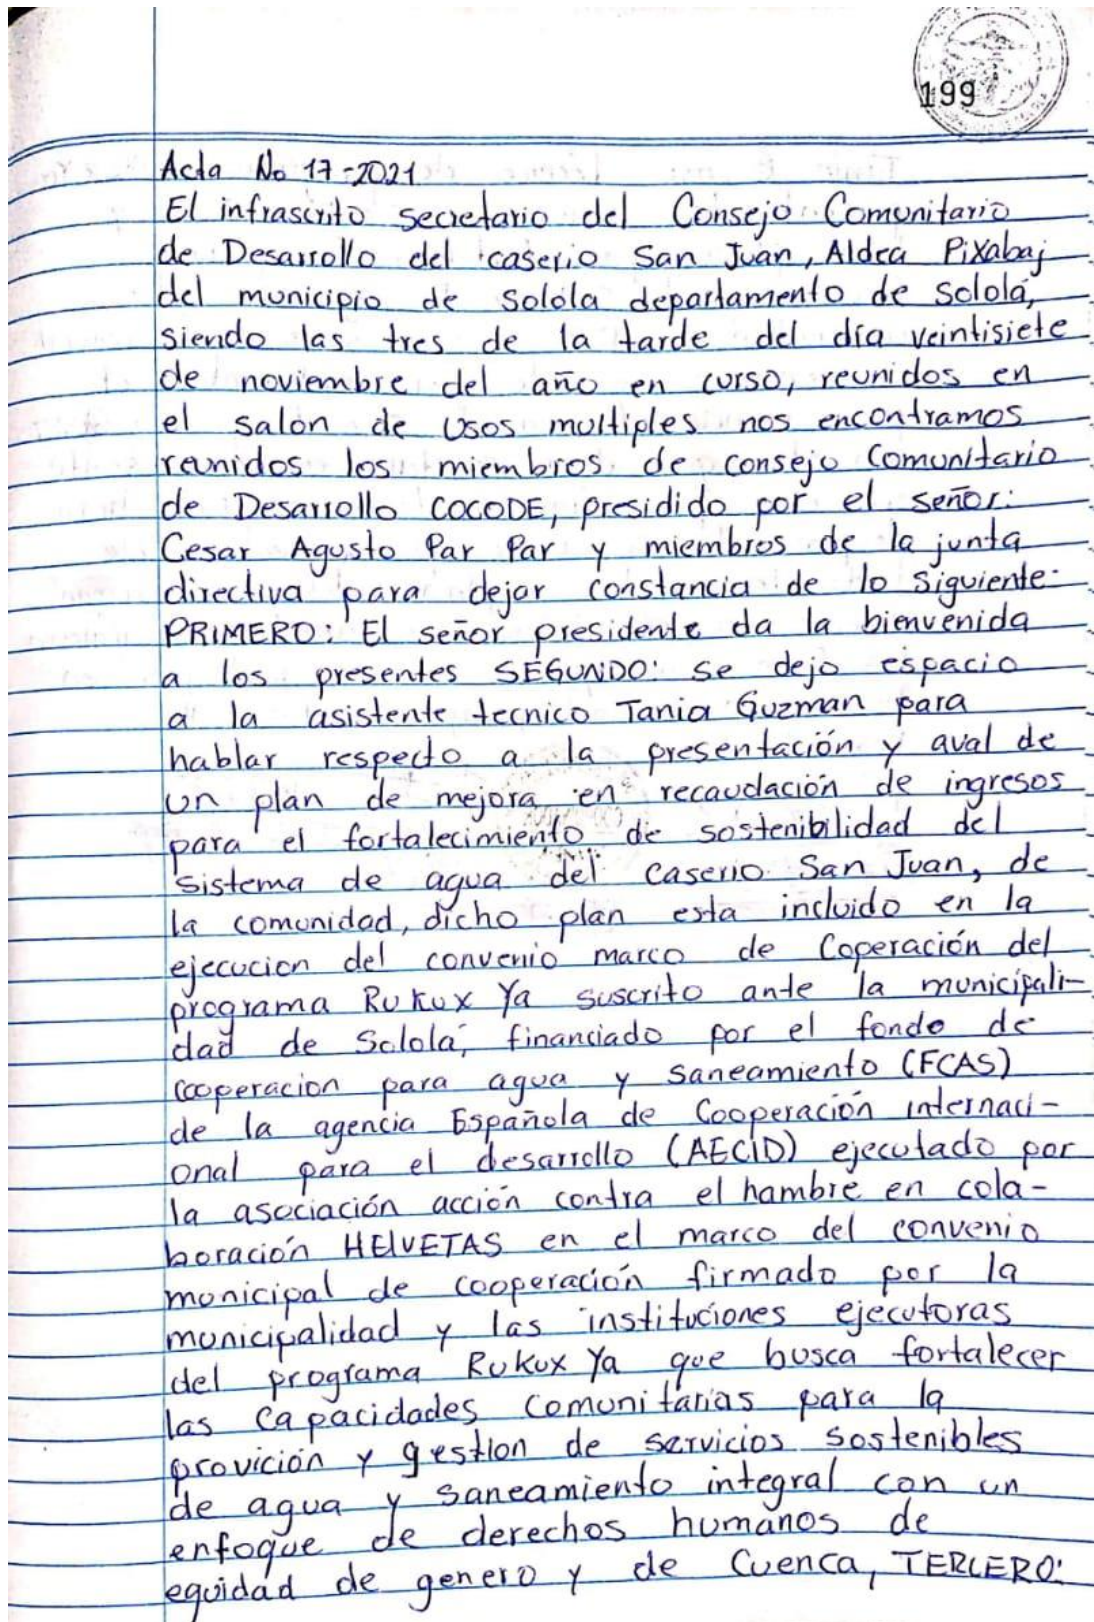 199
Acta No 17-2021
El infrascrito secretario del Consejo Comunitario
de Desarrollo del caserio San Juan, Aldea Pixabaj
del municipio de Sololá departamento de Sololá,
siendo las tres de la tarde del día veintisiete
de noviembre del año en curso, reunidos en
el salón de Usos multiples nos encontramos
reunidos los miembros de consejo Comunitario
de Desarrollo COCODE, presidido por el señor:
Cesar Agusto Par Par y miembros de la junta
directiva para dejar constancia de lo siguiente:
PRIMERO: El señor presidente da la bienvenida
a los presentes SEGUNDO: se dejo espacio
a la asistente tecnico Tania Guzman para
hablar respecto a la presentación y aval de
un plan de mejora en recaudación de ingresos
para el fortalecimiento de sostenibilidad del
sistema de agua del caserio San Juan, de
la comunidad, dicho plan esta incluido en la
ejecucion del convenio marco de Coperación del
programa Rukux Ya suscrito ante la municipali-
dad de Sololá, financiado por el fondo de
cooperacion para agua y saneamiento (FCAS)
de la agencia Española de Cooperación internaci-
onal para el desarrollo (AECID) ejecutado por
la asociación acción contra el hambre en cola-
boración HELVETAS en el marco del convenio
municipal de cooperación firmado por la
municipalidad y las instituciones ejecutoras
del programa Rukux Ya que busca fortalecer
las capacidades comunitarias para la
provición y gestion de servicios sostenibles
de agua y saneamiento integral con un
enfoque de derechos humanos de
equidad de genero y de Cuenca, TERCERO: